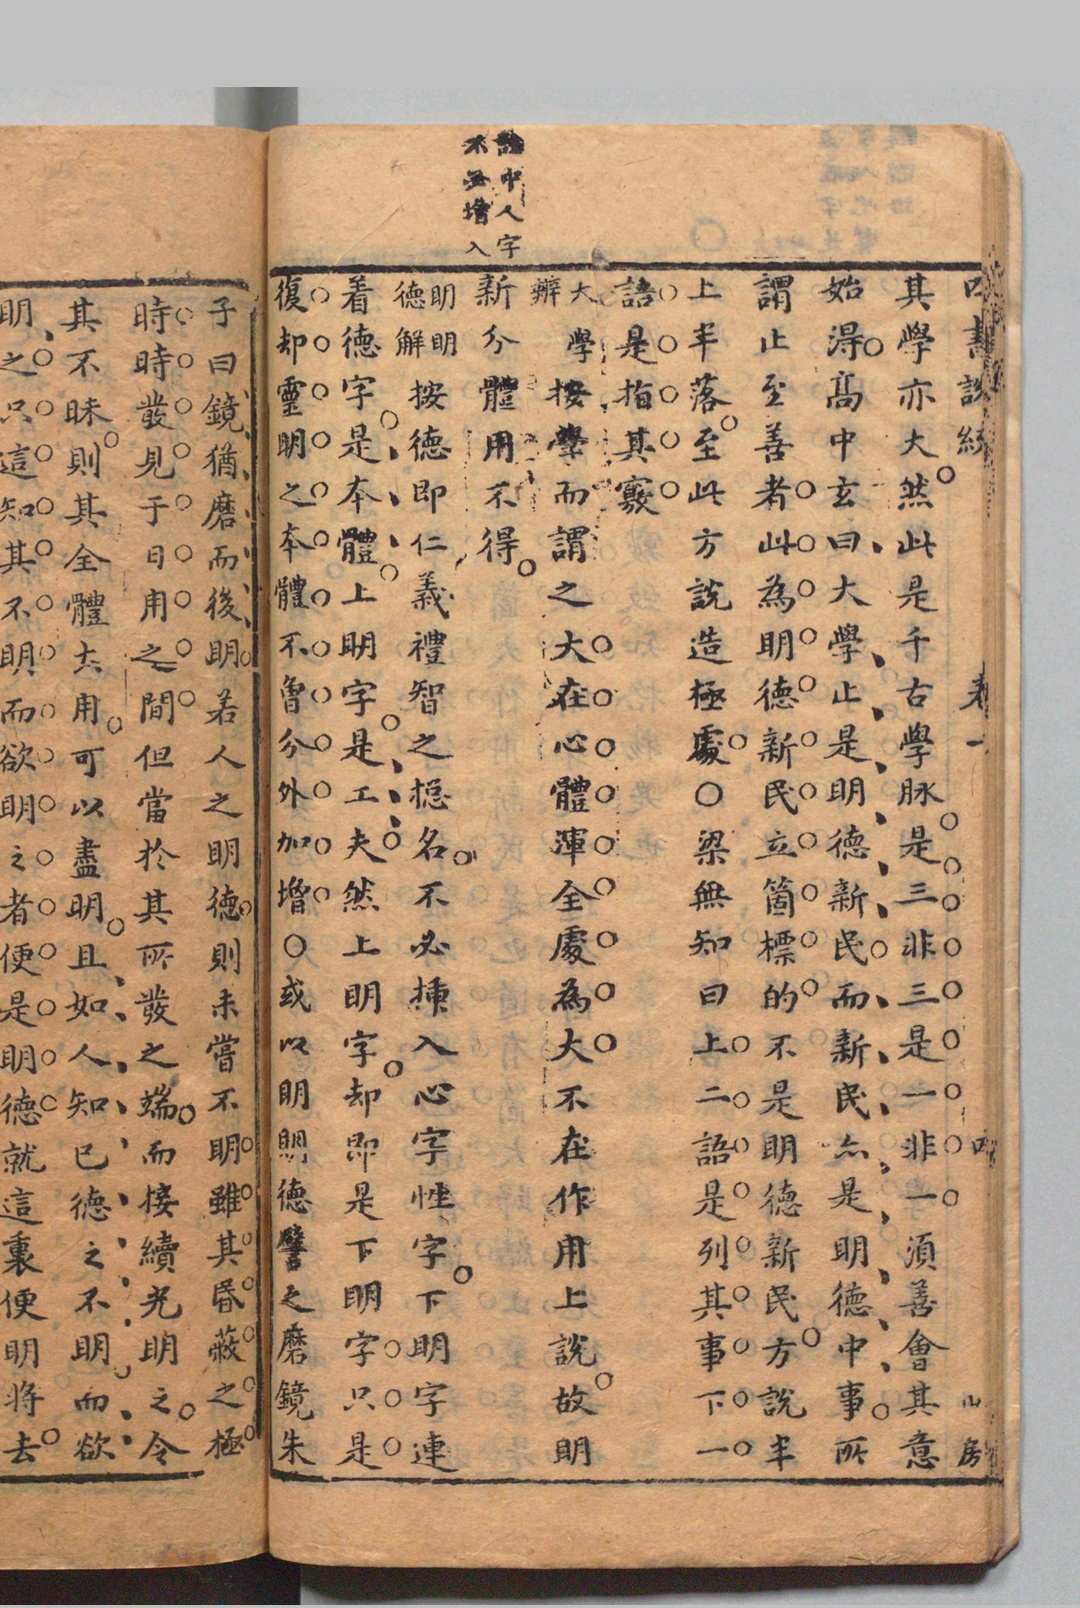 四書說統 卷一 四 山房
其學亦大然此是千古學脉是三非三是一非一須善會其意
始得高中玄曰大學止是明德新民而新民亦是明德中事所
謂止至善者此為明德新民立箇標的不是明德新民方說半
上半落至此方說造極處○梁無知曰上二語是列其事下一
語是指其竅
大學辨 按學而謂之大在心體渾全處為大不在作用上說故明
新分體用不得
論中人字
不必增入
明明
德解
按德即仁義禮智之總名不必揷入心字性字下明字連
着德字是本體上明字是工夫然上明字却即是下明字只是
復却靈明之本體不曾分外加增○或以明明德譬之磨鏡朱
子曰鏡猶磨而後明若人之明德則未嘗不明雖其昏蔽之極
時時發見于日用之間但當於其所發之端而接續光明之令
其不昧則其全體大用可以盡明且如人知已德之不明而欲
明之只這知其不明而欲明之者便是明德就這裏便明將去